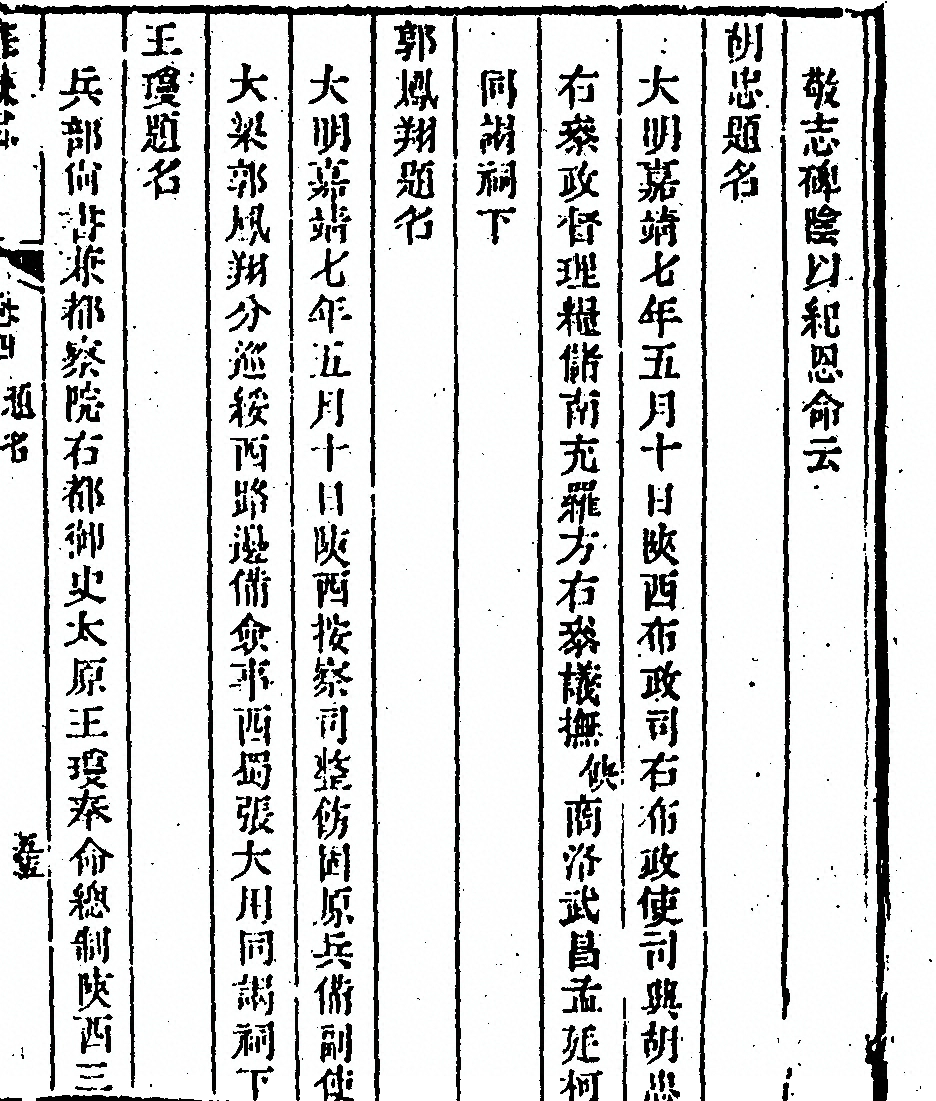 敬志碑陰以紀恩命云
胡忠題名
大明嘉靖七年五月十日陝西布政司右布政使司與胡忠
右叅政督理糧儲南充羅方右叅議撫 商洛武昌孟廷柯
同謁祠下
郭鳳翔題名
大明嘉靖七年五月十日陝西按察司整飭固原兵備副使
大梁郭鳳翔分巡綏西路邊備僉事西蜀張大用同謁祠下
王瓊題名
兵部尚書兼都察院右都御史太原王瓊奉命總制陝西三
卷四 題名